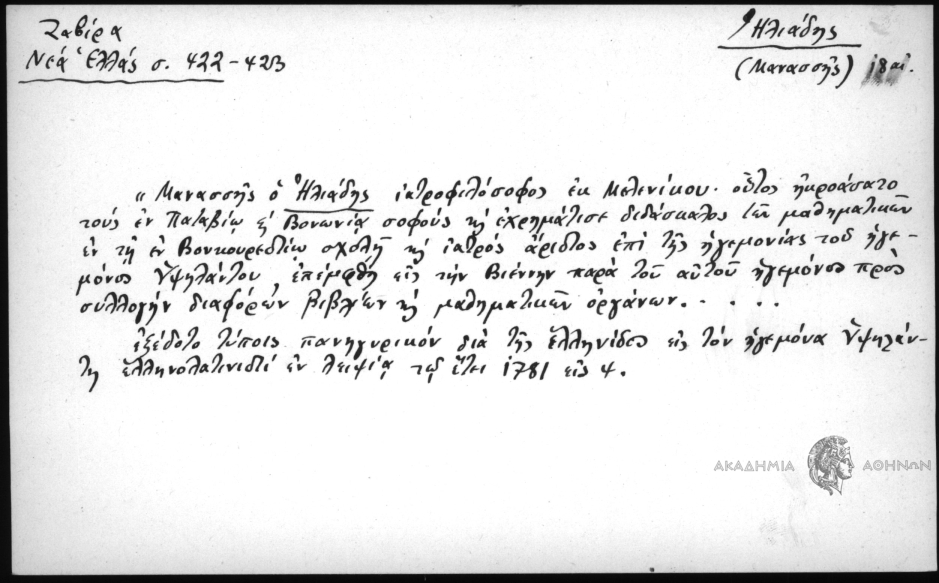 Ζαβίρα
Νέα Ἑλλάς σ. 422-423
Ἠλιάδης
(Μανασσῆς) 18 αἰ.
" Μανασσῆς ὁ Ἠλιάδης ἰατροφιλόσοφος ἐκ Μελενίκου. οὗτος ἠκροάσατο
τούς ἐν Παταβίῳ ϗ Βονωνίᾳ σοφούς ϗ ἐχρημάτισε διδάσκαλος τῶν μαθηματικῶν
ἐν τῇ ἐν Βουκουρεστίῳ σχολῇ ϗ ἰατρός ἄριστος ἐπί τῆς ἡγεμονίας τοῦ ἡγε-
μόνος Ὑψηλάντου, ἐπέμφθη εἰς τήν Βιέννην παρά τοῦ αὐτοῦ ἡγεμόνος πρός
συλλογήν διαφόρων βιβλίων ϗ μαθηματικῶν ὀργάνων. . . . .
ἐξέδοτο τύποις πανηγυρικόν διά τῆς Ἑλληνίδος εἰς τόν ἡγεμόνα Ὑψηλάν-
τη ἑλληνολατινιστί ἐν Λειψίᾳ τῷ ἔτει 1781 εἰς 4.
ΑΚΑΔΗΜΙΑ ΑΘΗΝΩΝ